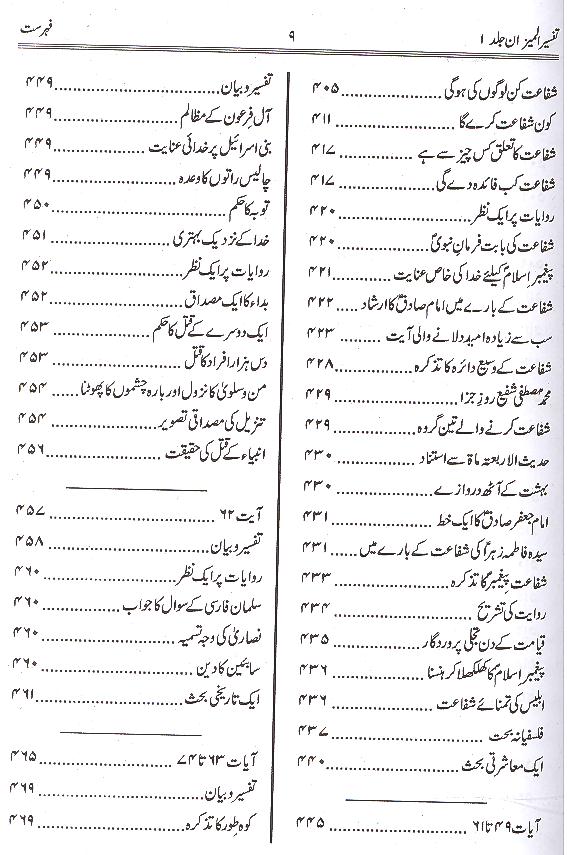 تفسیر المیزان جلد ۱
۹
فہرست
شفاعت کن لوگوں کی ہوگی ............ ۴۰۵
کون شفاعت کرے گا ............ ۴۱۱
شفاعت کا تعلق کس چیز سے ہے ............ ۴۱۷
شفاعت کب فائدہ دے گی ............ ۴۱۷
روایات پر ایک نظر ............ ۴۲۰
شفاعت کی بابت فرمانِ نبویؐ ............ ۴۲۰
پیغمبر اسلامؐ کیلئے خدا کی خاص عنایت ............ ۴۲۱
شفاعت کے بارے میں امام صادقؑ کا ارشاد ............ ۴۲۲
سب سے زیادہ امید دلانے والی آیت ............ ۴۲۳
شفاعت کے وسیع دائرہ کا تذکرہ ............ ۴۲۸
محمد مصطفیٰؐ شفیع روزِ جزا ............ ۴۲۹
شفاعت کرنے والے تین گروہ ............ ۴۲۹
حدیث الاربعتہ ماۃ سے استناد ............ ۴۳۰
بہشت کے آٹھ دروازے ............ ۴۳۰
امام جعفر صادقؑ کا ایک خط ............ ۴۳۱
سیدہ فاطمہ زہراؑ کی شفاعت کے بارے میں ............ ۴۳۱
شفاعت پیغمبرؐ کا تذکرہ ............ ۴۳۳
روایت کی تشریح ............ ۴۳۴
قیامت کے دن تجلی پروردگار ............ ۴۳۵
پیغمبر اسلامؐ کا کھلکھلا کر ہنسنا ............ ۴۳۶
ابلیس کی تمنائے شفاعت ............ ۴۳۶
فلسفیانہ بحث ............ ۴۳۷
ایک معاشرتی بحث ............ ۴۴۰
آیات ۴۹ تا ۶۱ ............ ۴۴۵
تفسیر و بیان ............ ۴۴۹
آل فرعون کے مظالم ............ ۴۴۹
بنی اسرائیل پر خدائی عنایت ............ ۴۴۹
چالیس راتوں کا وعدہ ............ ۴۴۹
توبہ کا حکم ............ ۴۵۰
خدا کے نزدیک بہتری ............ ۴۵۱
روایات پر ایک نظر ............ ۴۵۲
بداء کا ایک مصداق ............ ۴۵۲
ایک دوسرے کے قتل کا حکم ............ ۴۵۳
دس ہزار افراد کا قتل ............ ۴۵۳
من و سلویٰ کا نزول اور بارہ چشموں کا پھوٹنا ............ ۴۵۴
تنزیل کی مصداقی تصویر ............ ۴۵۴
انبیاء کے قتل کی حقیقت ............ ۴۵۶
آیت ۶۲ ............ ۴۵۷
تفسیر و بیان ............ ۴۵۸
روایات پر ایک نظر ............ ۴۶۰
سلمان فارسی کے سوال کا جواب ............ ۴۶۰
نصاریٰ کی وجہ تسمیہ ............ ۴۶۰
سابئین کا دین ............ ۴۶۰
ایک تاریخی بحث ............ ۴۶۱
آیات ۶۳ تا ۷۴ ............ ۴۶۵
تفسیر و بیان ............ ۴۶۹
کوہ طور کا تذکرہ ............ ۴۶۹